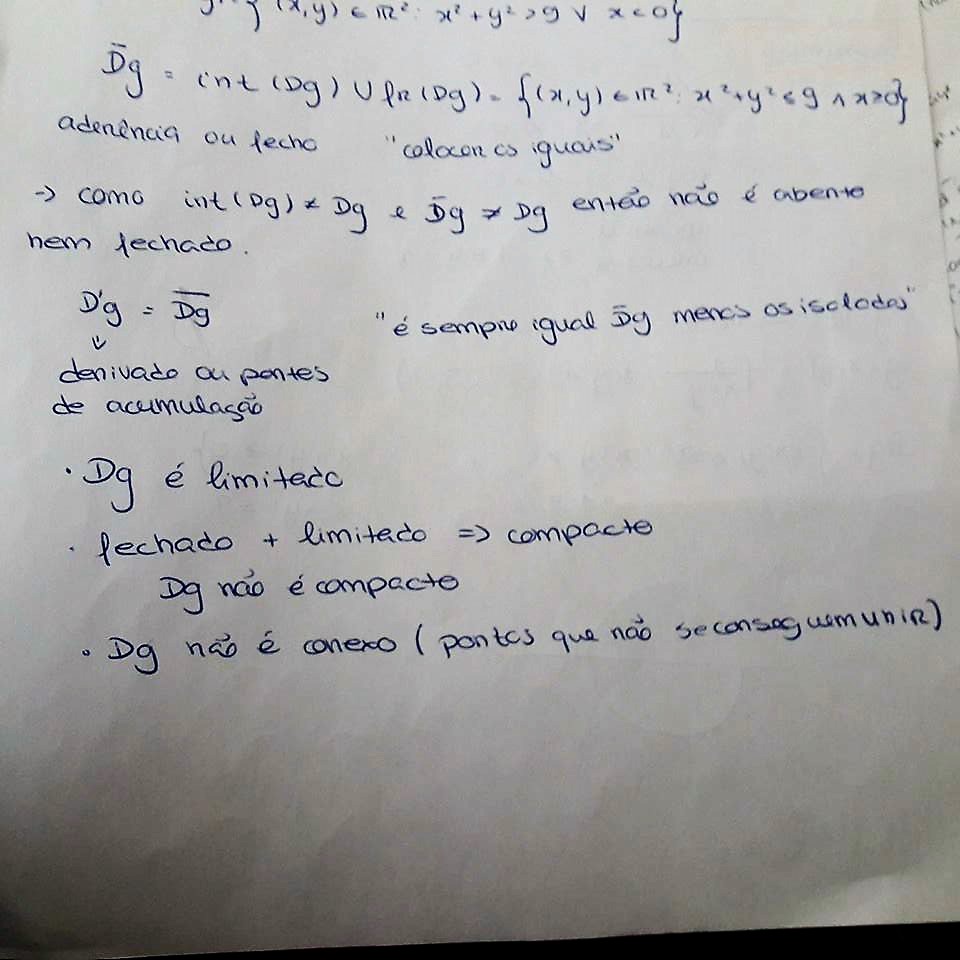 {(x,y) ∈ IR²: x² + y² > 9 ∨ x < 0}
D̄g = int (Dg) ∪ fr (Dg) = {(x,y) ∈ IR²: x²+y² ≤ 9 ∧ x≥0}
aderência ou fecho "colocar os iguais"
→ como int(Dg) ≠ Dg e D̄g ≠ Dg então não é aberto
nem fechado.
D'g = D̄g "é sempre igual D̄g menos os isolados"
derivado ou pontos
de acumulação
· Dg é limitado
· fechado + limitado => compacto
Dg não é compacto
· Dg não é conexo (pontos que não se conseguem unir)